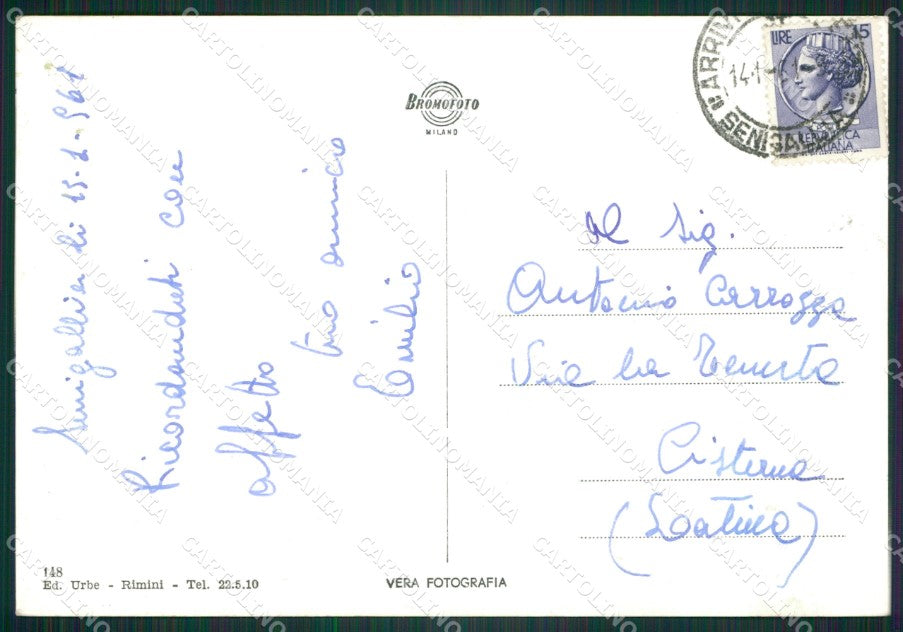 Senigallia li 15-1-961
Ricordandoti con
affetto
tuo amico
Emilio
BROMOFOTO
MILANO
"ARRIVI
14.1
SENIGALLIA"
LIRE 15
REPUBBLICA
ITALIANA
Al Sig.
Antonio Carrozza
Via La Tenuta
Cisterna
(Latina)
148
Ed. Urbe - Rimini - Tel. 22.5.10
VERA FOTOGRAFIA
CARTOLINOMANIA